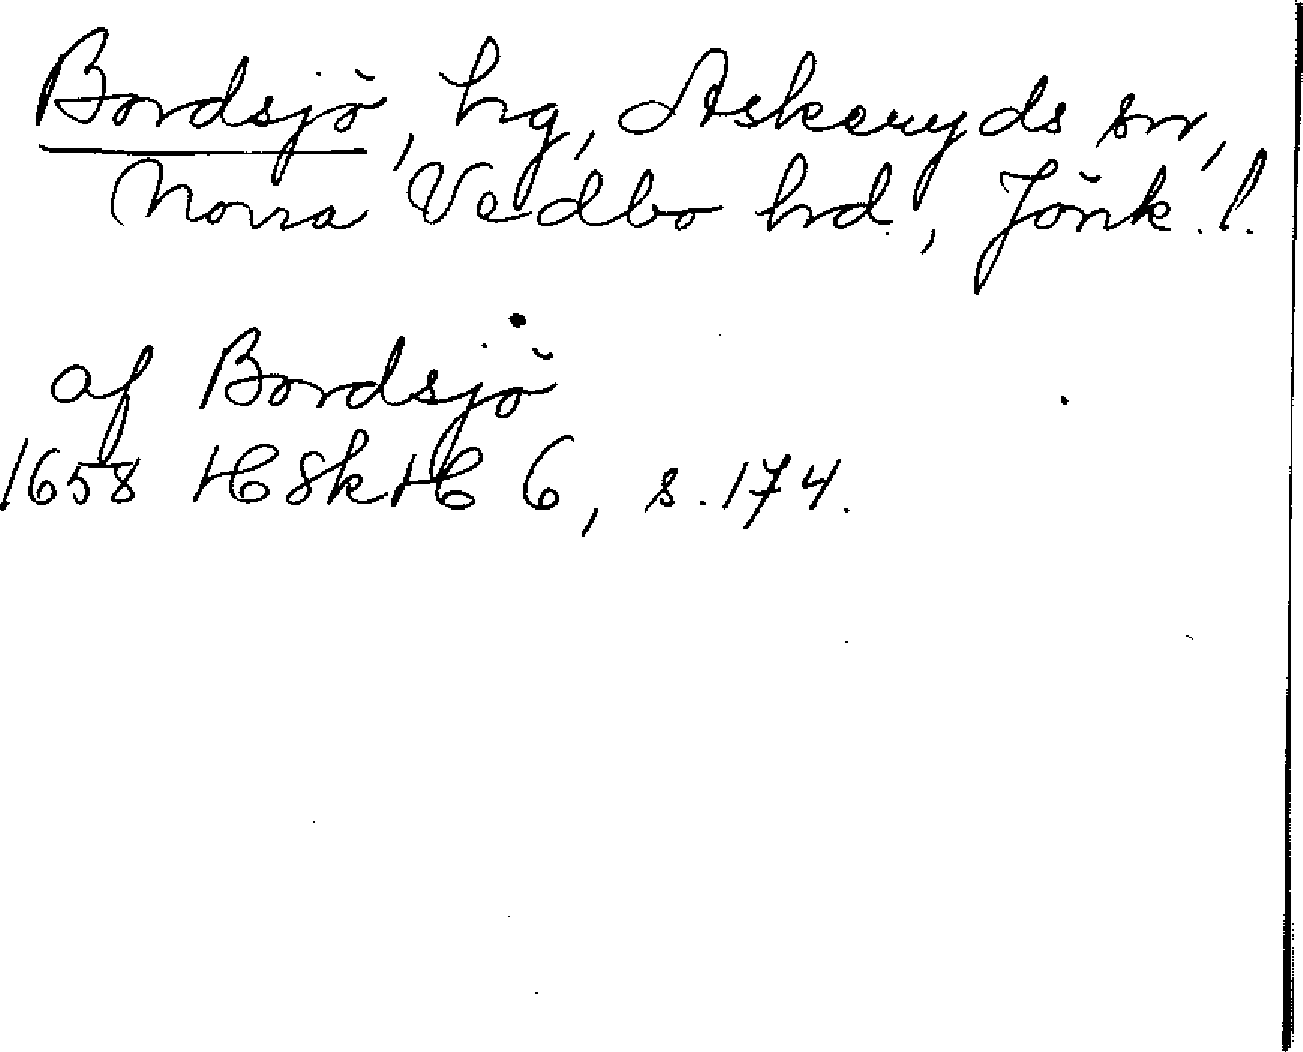 Bordsjö, hg, Askeryds sn,
Norra Vedbo hd., Jönk. l.
af Bordsjö
1658 HSkH 6, s. 174.